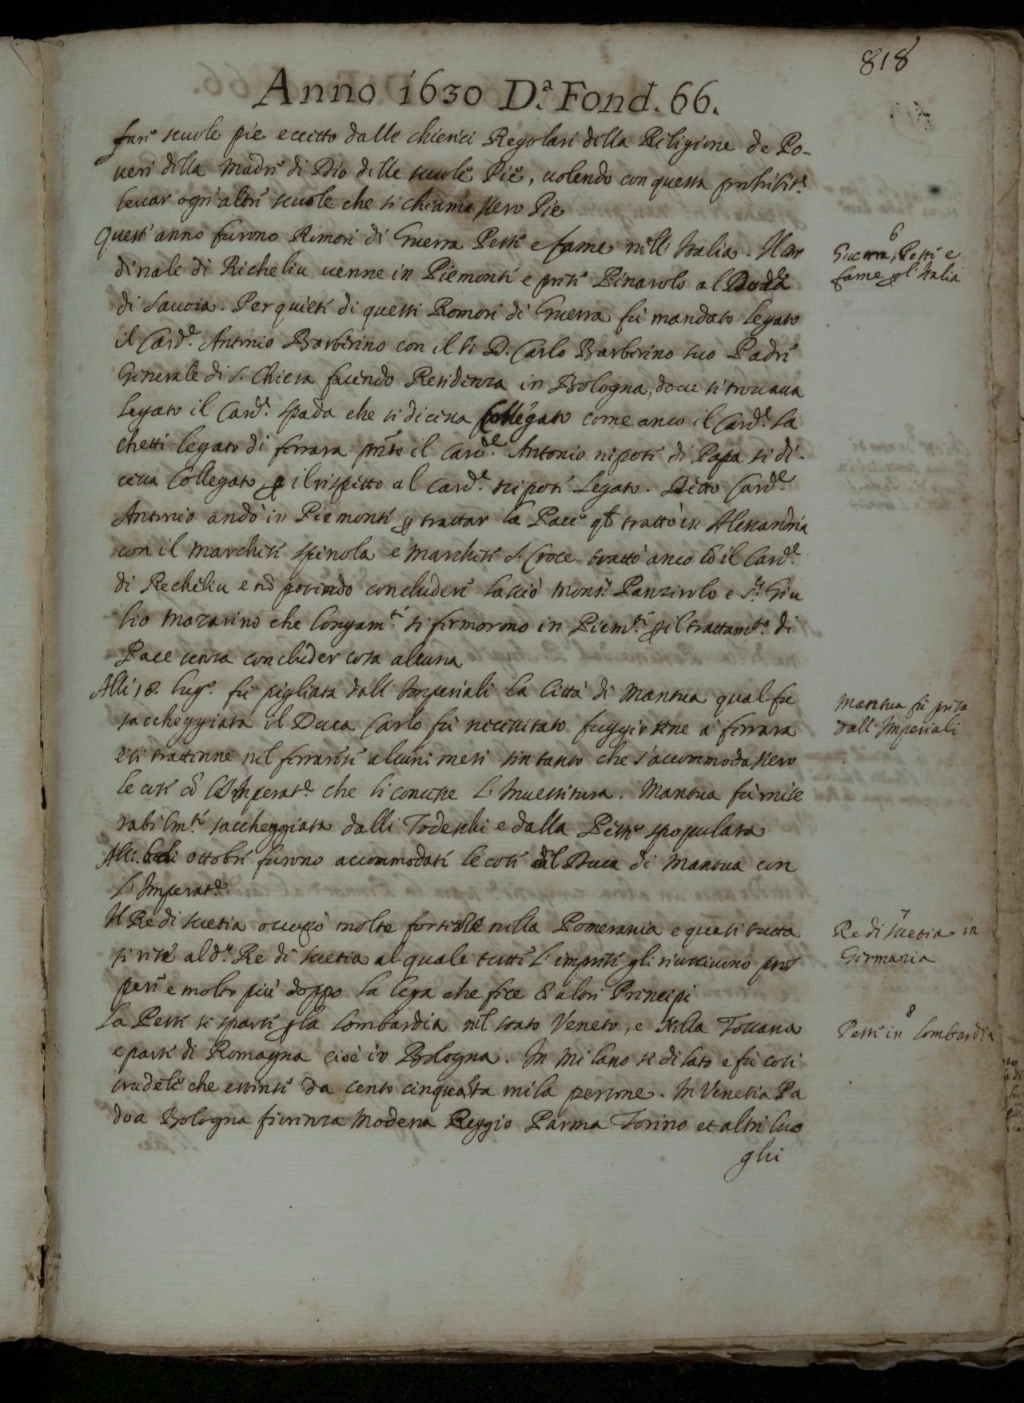 818
Anno 1630 D.ª Fond. 66.
far scuole pie eccetto dalle chierici Regolari della Religione de Po-
veri della Madre di Dio delle scuole Pie, volendo con questa prohibit.e
levar ogn'altre scuole che si chiamassero Pie
Quest'anno furono Rumori di Guerra Peste e fame nell'Italia. Il Car
dinale di Richeliu venne in Piemonte e prese Pinarolo al Duca
di Savoia. Per quiete di questi Romori di Guerra fu mandato legato
il Card.e Antonio Barberino con il S. D. Carlo Barberino suo Padre
Generale di S. Chiesa facendo Residenza in Bologna, dove si trovava
legato il Card.e Spada che si diceva Collegato come anco il Card.e Sa
chetti legato di ferrara il Card.e Antonio nipote di Papa si di-
ceva Collegato, p il rispetto al Card.e nipote Legato. Detto Card.e
Antonio andò in Piemonte p trattar la Pace qle trattò in Alessandria
con il Marchese Spinola e Marchese S. Croce trattò anco cō il Card.e
di Rechiliu e nō potendo concludere lasciò Mons.r Panzirolo e S.r Giu
lio Mazarino che longam.te si fermorono in Piem.te p il trattam.to di
Pace senza concluder cosa alcuna
Alli 18. lug.o fu pigliata dall'Imperiali la Città di Mantua qual fu
saccheggiata il Duca Carlo fu necessitato fuggirsene a ferrara
e si trattenne nel ferrarese alcuni mesi sin tanto che s'accommodassero
le cose cō l'Imperat.e che li concesse l'Investitura. Mantua fu mise
rabilm.te saccheggiata dalli Todeschi e dalla Peste spopulata
Alli ottobre furono accommodate le cose del Duca di Mantua con
l'Imperat.e
Il Re di Suetia occupò molte fortezze nella Pomerania e quasi tutta
si rese al d.o Re di Suetia al quale tutte l'imprese gli riuscivono pros
pere e molto più doppo la lega che fece cō altri Principi
La Peste si sparse p la Lombardia nel stato Veneto, e nella Toscana
e parte di Romagna cioè in Bologna. In Milano si dilatò e fu così
crudele che estinse da cento cinquanta mila persone. In Venetia Pa
doa Bologna fiorenza Modena Reggio Parma Torino et altri luo
ghi
6
Guerra, Peste e
fame p l'Italia
Mantua fu presa
dall'Imperiali
7
Re di Suetia in
Germania
8
Peste in Lombardia